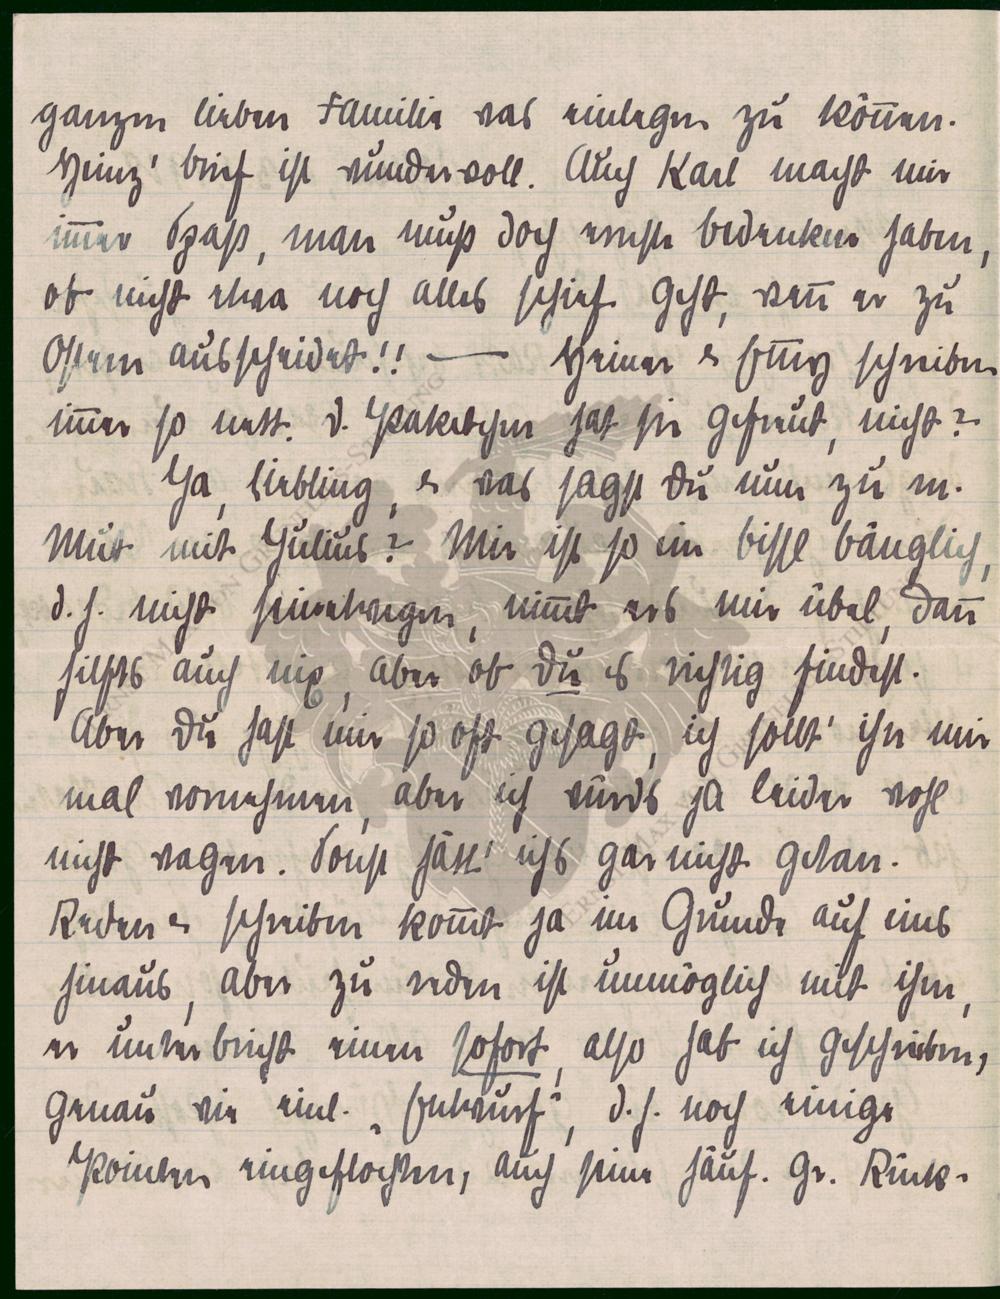 ganzen lieben Familie was einlegen zu können.
Heinz' brief ist wundervoll. Auch Karl macht mir
immer Spaß, man muß doch ernste bedenken haben,
ob nicht etwa noch alles schief geht, wenn er zu
Ostern ausscheidet!! — Heiner & schreiben
immer so nett. d. Paketchen hat sie gefreut, nicht?
Ja, liebling, & was sagst du nun zu m.
Mut mit Julius? Mir ist so ein bissl bänglich,
d. h. nicht seinetwegen, nimmt ers mir übel, dann
hilfts auch nix, aber ob du es richtig findest.
Aber du hast mir so oft gesagt, ich sollt' ihn mir
mal vornehmen, aber ich würds ja leider wohl
nicht wagen. Sonst hätt' ichs gar nicht getan.
Reden & schreiben kommt ja im Grunde auf eins
hinaus, aber zu reden ist unmöglich mit ihm,
er unterbricht einen sofort, also hab ich geschrieben,
genau wie einl. „Entwurf“, d. h. noch einige
Pointen eingeflochten, auch seine häuf. gr. Rück-